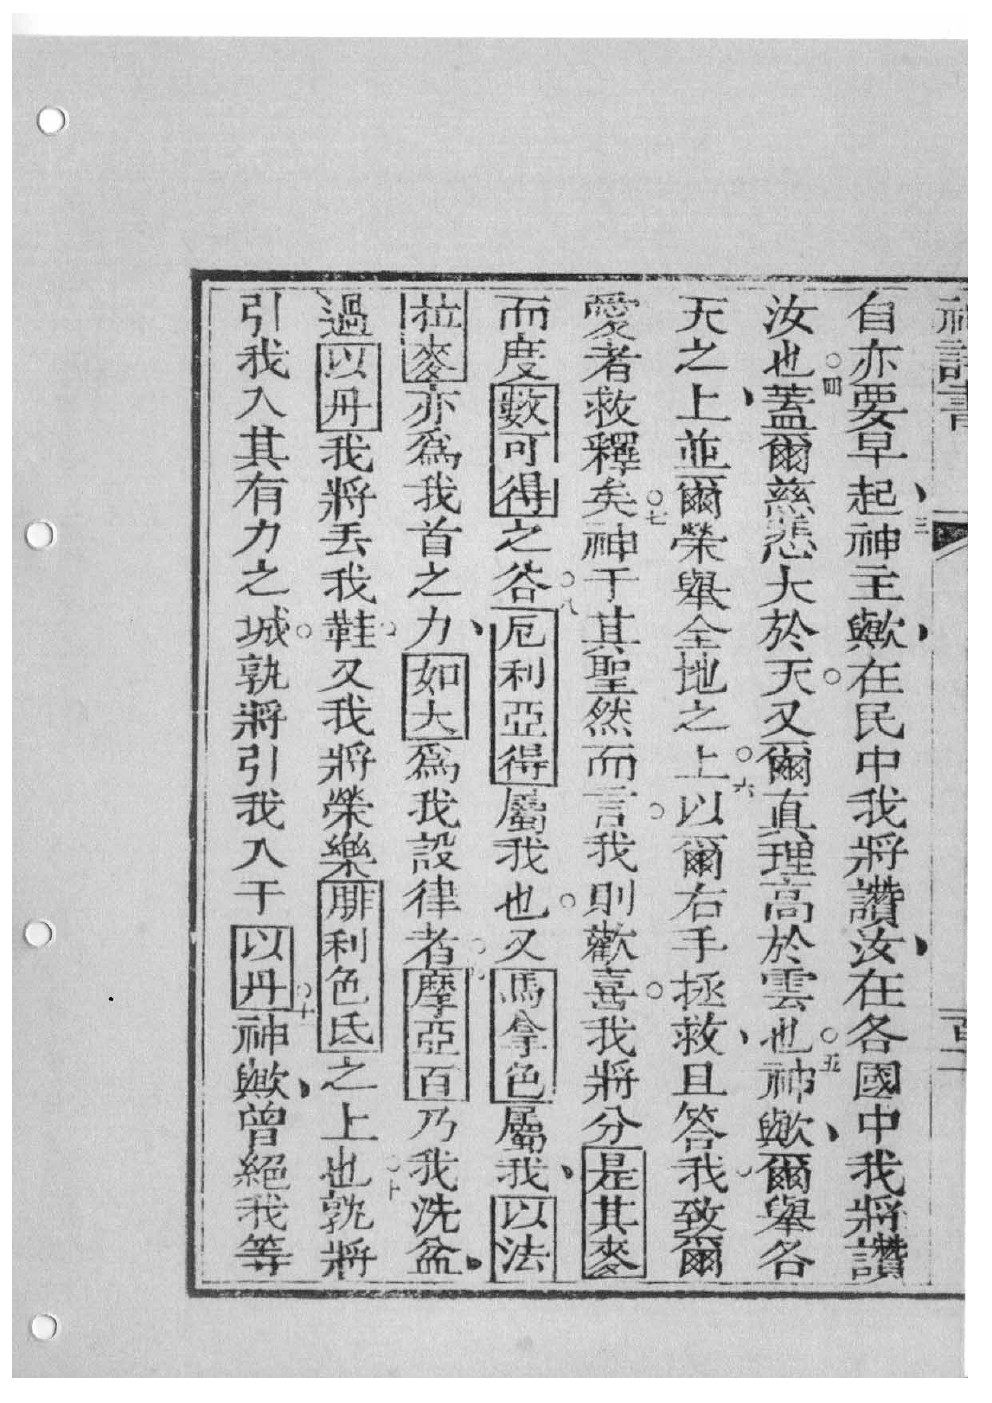 神詩書 百
自亦要早起三神主歟在民中我將讚汝在各國中我將讚
汝也四蓋爾慈悲大於天又爾真理高於雲也五神歟爾舉各
天之上並爾榮舉全地之上六以爾右手拯救且答我致爾
愛者救釋矣七神于其聖然而言我則歡喜我將分是其麥
而度數可得之谷八厄利亞得屬我也又馬拿色屬我以法
拉麥亦為我首之力如大為我設律者九摩亞百乃我洗盆
過以丹我將丟我鞋又我將榮樂腓利色氐之上也十孰將
引我入其有力之城孰將引我入于以丹十神歟曾絕我等